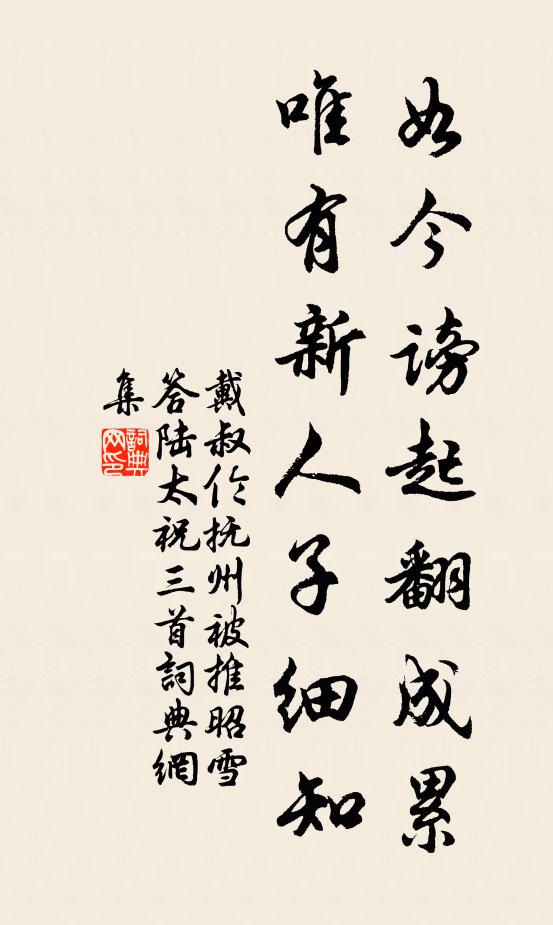 如今謗起翻成累
唯有新人子細知
戴叔伦抚州被推昭雪
答陆太祝三首詞典網
集
詞典
网印